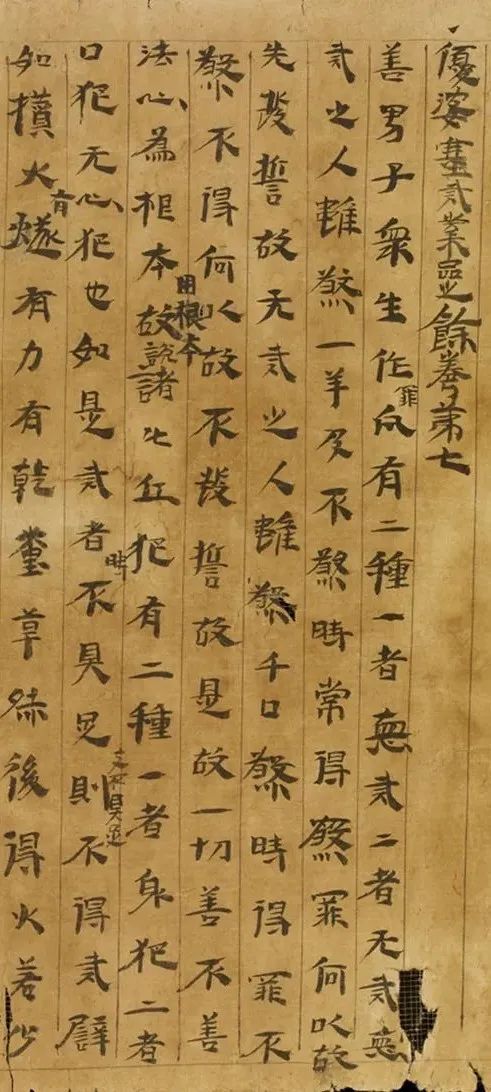 優婆塞戒業品之餘卷第七
善男子衆生作罪凡有二種一者惡戒二者无戒惡
戒之人雖煞一羊及不煞時常得煞罪何以故
先發誓故无戒之人雖煞千口煞時得罪不
煞不得何以故不發誓故是故一切善不善
法心為根本因根本故說諸比丘犯有二種一者身犯二者
口犯无心犯也如是戒者時不具足支不具足則不得戒譬
如攢火有燧有力有乾糞草然後得火若少